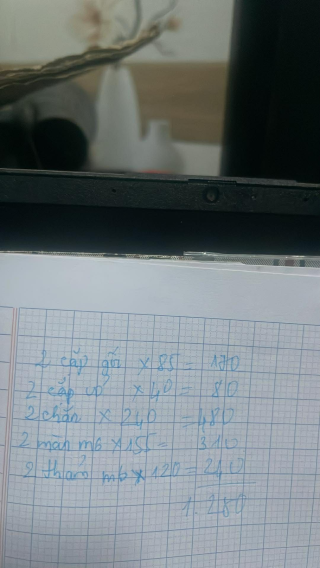 2 cặp gối × 85 = 170
2 cặp vỏ × 40 = 80
2 chăn × 240 = 480
2 màn mb × 155 = 310
2 thảm mb × 120 = 240
1.280